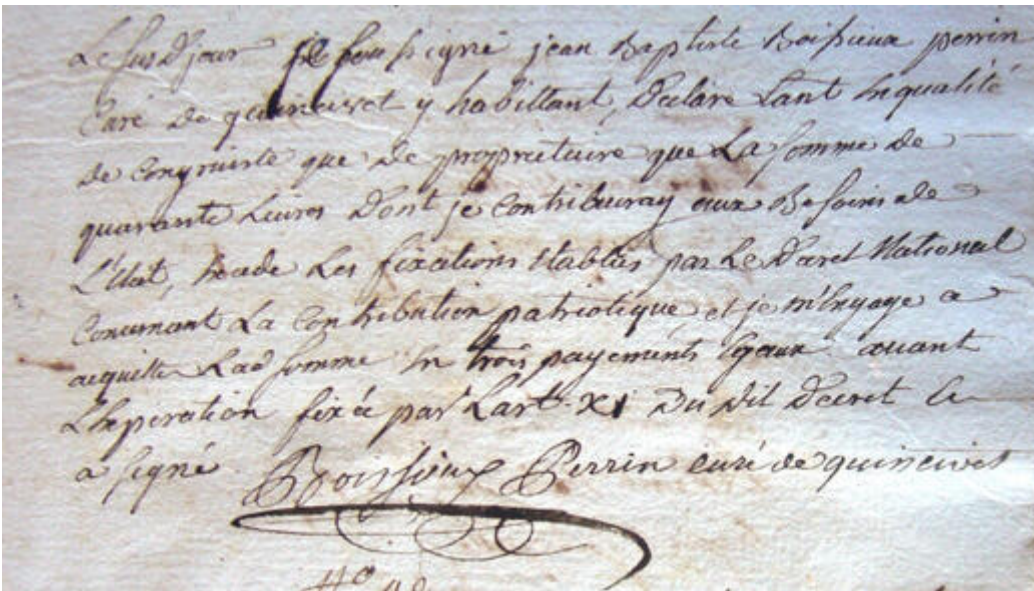 Le susd jour je soussigné jean Baptiste Boissieux perrin
Curé de quincivet y habittant, Declare tant En qualité
de Congruiste que de proprietaire que La somme de
quarante Livres Dont je Contribueray aux Besoins de
L'Etat, Exede Les fixations Etablies par Le Decret National
Concernant La Contribution patriotique et je m'Engage a
acquitter Lad somme En trois payements Egaux avant
L'Expiration fixée par L'art. XI Du dit Decret &
a signé Boissieux Perrin curé de quincivet